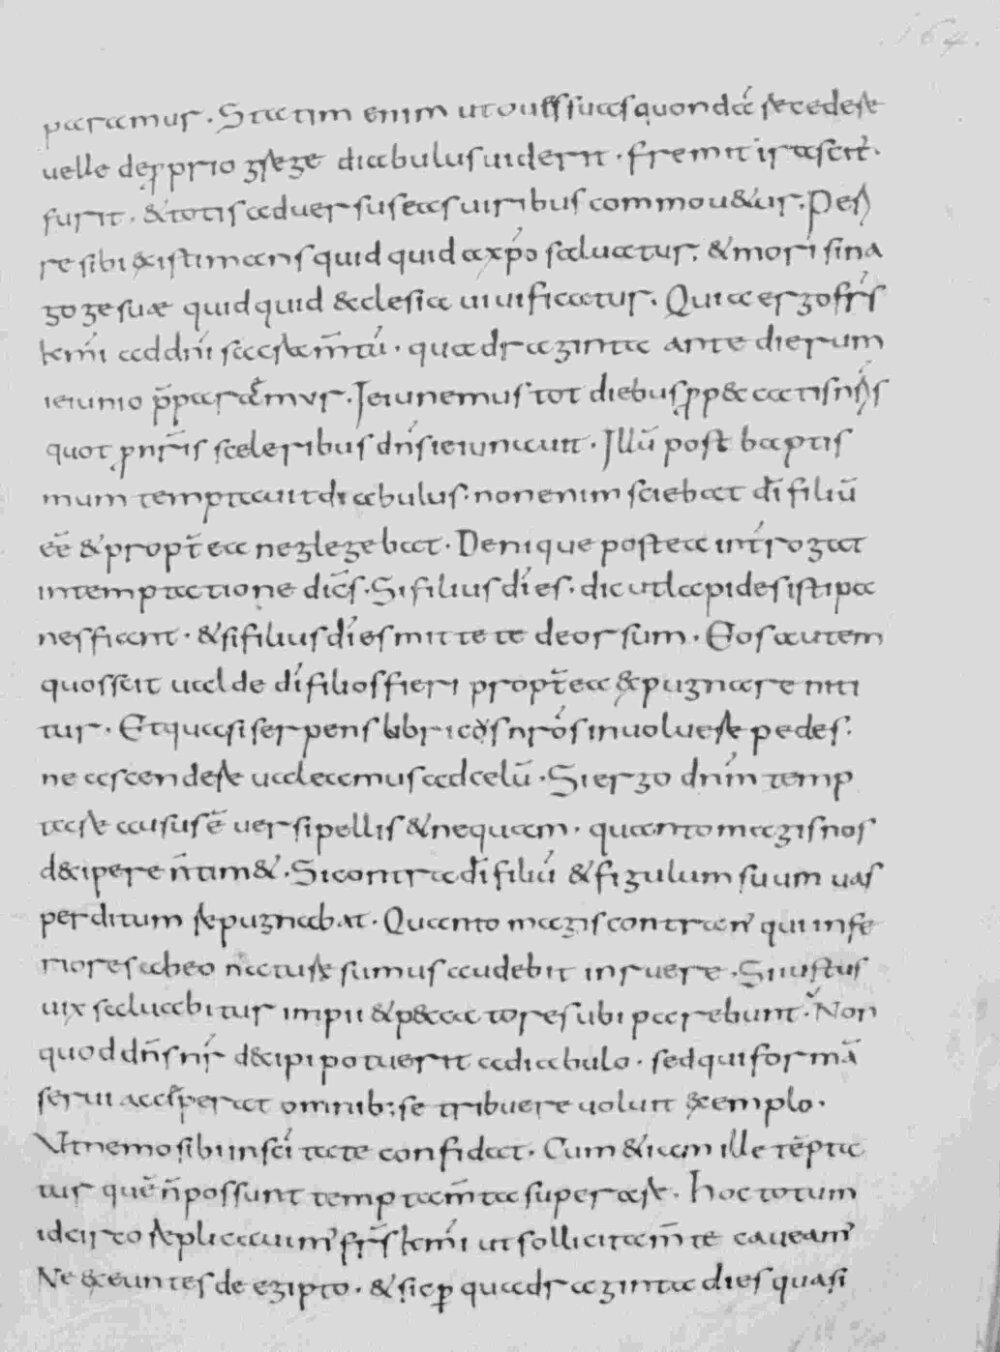 164.
paramus. Statim enim ut oues suas quondã secedese
uelle de pprio grege diabulus uiderit. fremit irascit̃.
furit. & totis aduersus eas uiribus commou&ur. Peri
re sibi existimans quid quid a xp̃o saluatur. & mori sina
gogesuæ quid quid ecclesia uiuificatur. Quia ergo fr̃s
km̃i ad dñi sacram̃tũ. quadraginta ante dierum
ieiunio p̃paramur. Ieiunemus tot diebus pp&catis nr̃is
quot p nr̃is sceleribus dñs ieiunauit. Illũ post baptis
mum temptauit diabulus. non enim sciebat dĩ filiũ
eẽ & propt̃ea neglegebat. Denique postea int̃rogat
in temptatione dic̃s. Si filius dĩ es. dic ut lapides isti pa
nes fiant. & si filius dĩ es mitte te deorsum. Eos autem
quos scit uel de dĩ filios fieri propt̃ea expugnare niti
tur. Et quasi serpens lubricos nr̃os inuoluere pedes.
ne ascendere ualeamus ad celũ. Si ergo dñm temp
tare ausus ẽ uersipellis & nequam. quanto magis nos
d&ipere ñ tim&. Si contra dĩ filiũ & figulum suum uas
perditum repugnabat. Quanto magis contra eñ qui infe
riores ab eo nature sumus audebit insuere. Si iustus
uix saluabitur impii & p&catores ubi parebunt. Non
quod dñs nr̃ d&ipi potuerit a diabulo. sed qui formã
serui acceperat omnib; se tribuere uoluit exemplo.
Ut nemo sibi in sc̃itate confidat. Cum &iam ille tẽpta
tur quẽ ñ possunt temptam̃ta superare. hoc totum
idcirco replicauim' fr̃s km̃i ut sollicitam̃te caueam'
Ne exeuntes de egipto. & sic p quadraginta dies quasi